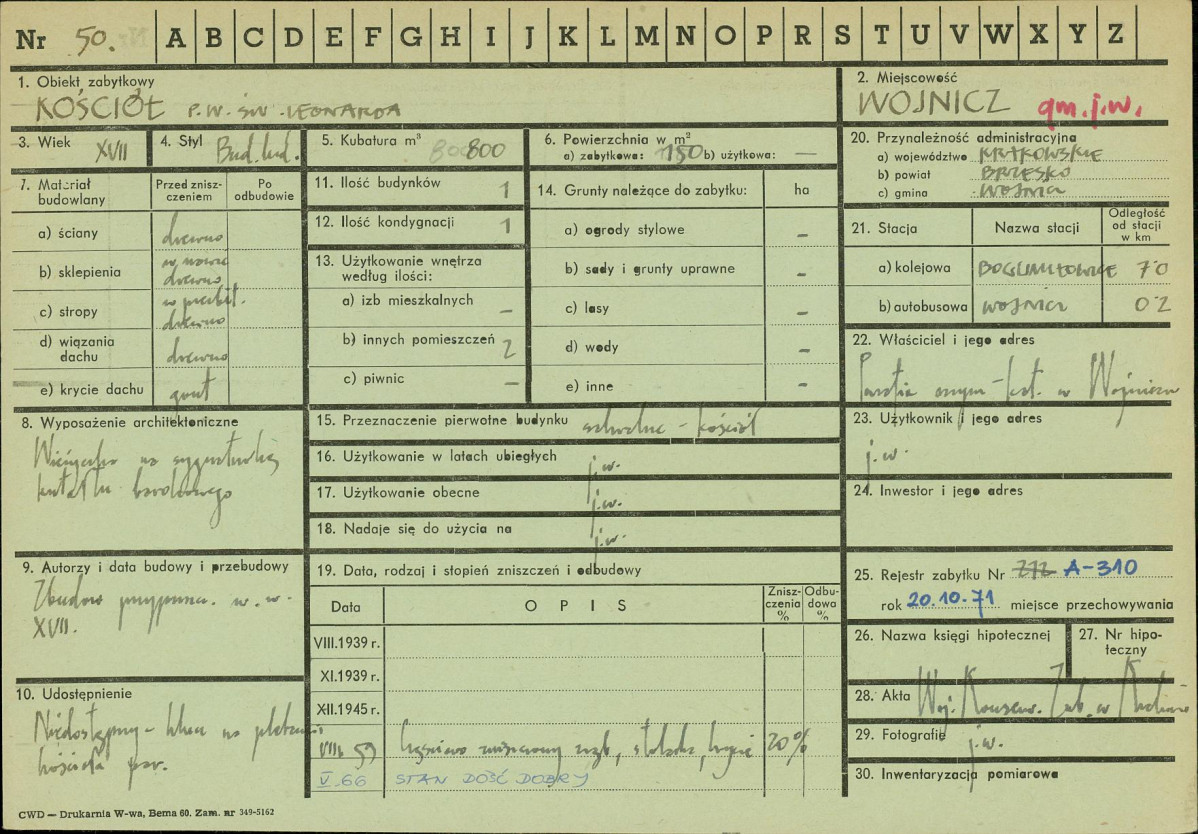 Nr 50. A B C D E F G H I J K L M N O P R S T U V W X Y Z
1. Obiekt zabytkowy
KOŚCIÓŁ P.W. ŚW. LEONARDA
2. Miejscowość
WOJNICZ gm. j.w.
3. Wiek XVII
4. Styl Bud. lud.
5. Kubatura m³ 800
6. Powierzchnia w m²
a) zabytkowa: 150 b) użytkowa: —
20. Przynależność administracyjna
a) województwo KRAKOWSKIE
b) powiat BRZESKO
c) gmina WOJNICZ
7. Materiał budowlany
Przed zniszczeniem
Po odbudowie
a) ściany drewno
b) sklepienia w nawie drewno
c) stropy w prezbit. drewno
d) wiązania dachu drewno
e) krycie dachu gont
11. Ilość budynków 1
12. Ilość kondygnacji 1
13. Użytkowanie wnętrza według ilości:
a) izb mieszkalnych —
b) innych pomieszczeń 2
c) piwnic —
14. Grunty należące do zabytku: ha
a) ogrody stylowe —
b) sady i grunty uprawne —
c) lasy —
d) wody —
e) inne —
21. Stacja
Nazwa stacji
Odległość od stacji w km
a) kolejowa BOGUMIŁOWICE 7.0
b) autobusowa WOJNICZ 0.2
22. Właściciel i jego adres
Parafia rzym-kat. w Wojniczu
23. Użytkownik i jego adres
j.w.
24. Inwestor i jego adres
8. Wyposażenie architektoniczne
Wieżyczka na sygnaturkę
kształtu barokowego
15. Przeznaczenie pierwotne budynku sakralne - kościół
16. Użytkowanie w latach ubiegłych j.w.
17. Użytkowanie obecne j.w.
18. Nadaje się do użycia na j.w.
9. Autorzy i data budowy i przebudowy
Zbudow. przypuszcz. w. w.
XVII.
19. Data, rodzaj i stopień zniszczeń i odbudowy
Data
OPIS
Zniszczenia %
Odbudowa %
VIII.1939 r.
XI.1939 r.
XII.1945 r.
VIII 59 częściowo zniszczony zrąb, stolarka, krycie 20%
V.66 STAN DOŚĆ DOBRY
25. Rejestr zabytku Nr A-310
rok 20.10.71 miejsce przechowywania
26. Nazwa księgi hipotecznej
27. Nr hipoteczny
28. Akta Woj. Konserw. Zab. w Krakowie
29. Fotografie j.w.
30. Inwentaryzacja pomiarowa
10. Udostępnienie
Niedostępny - klucz na plebanii
kościoła par.
CWD — Drukarnia W-wa, Bema 60. Zam. nr 349-5162